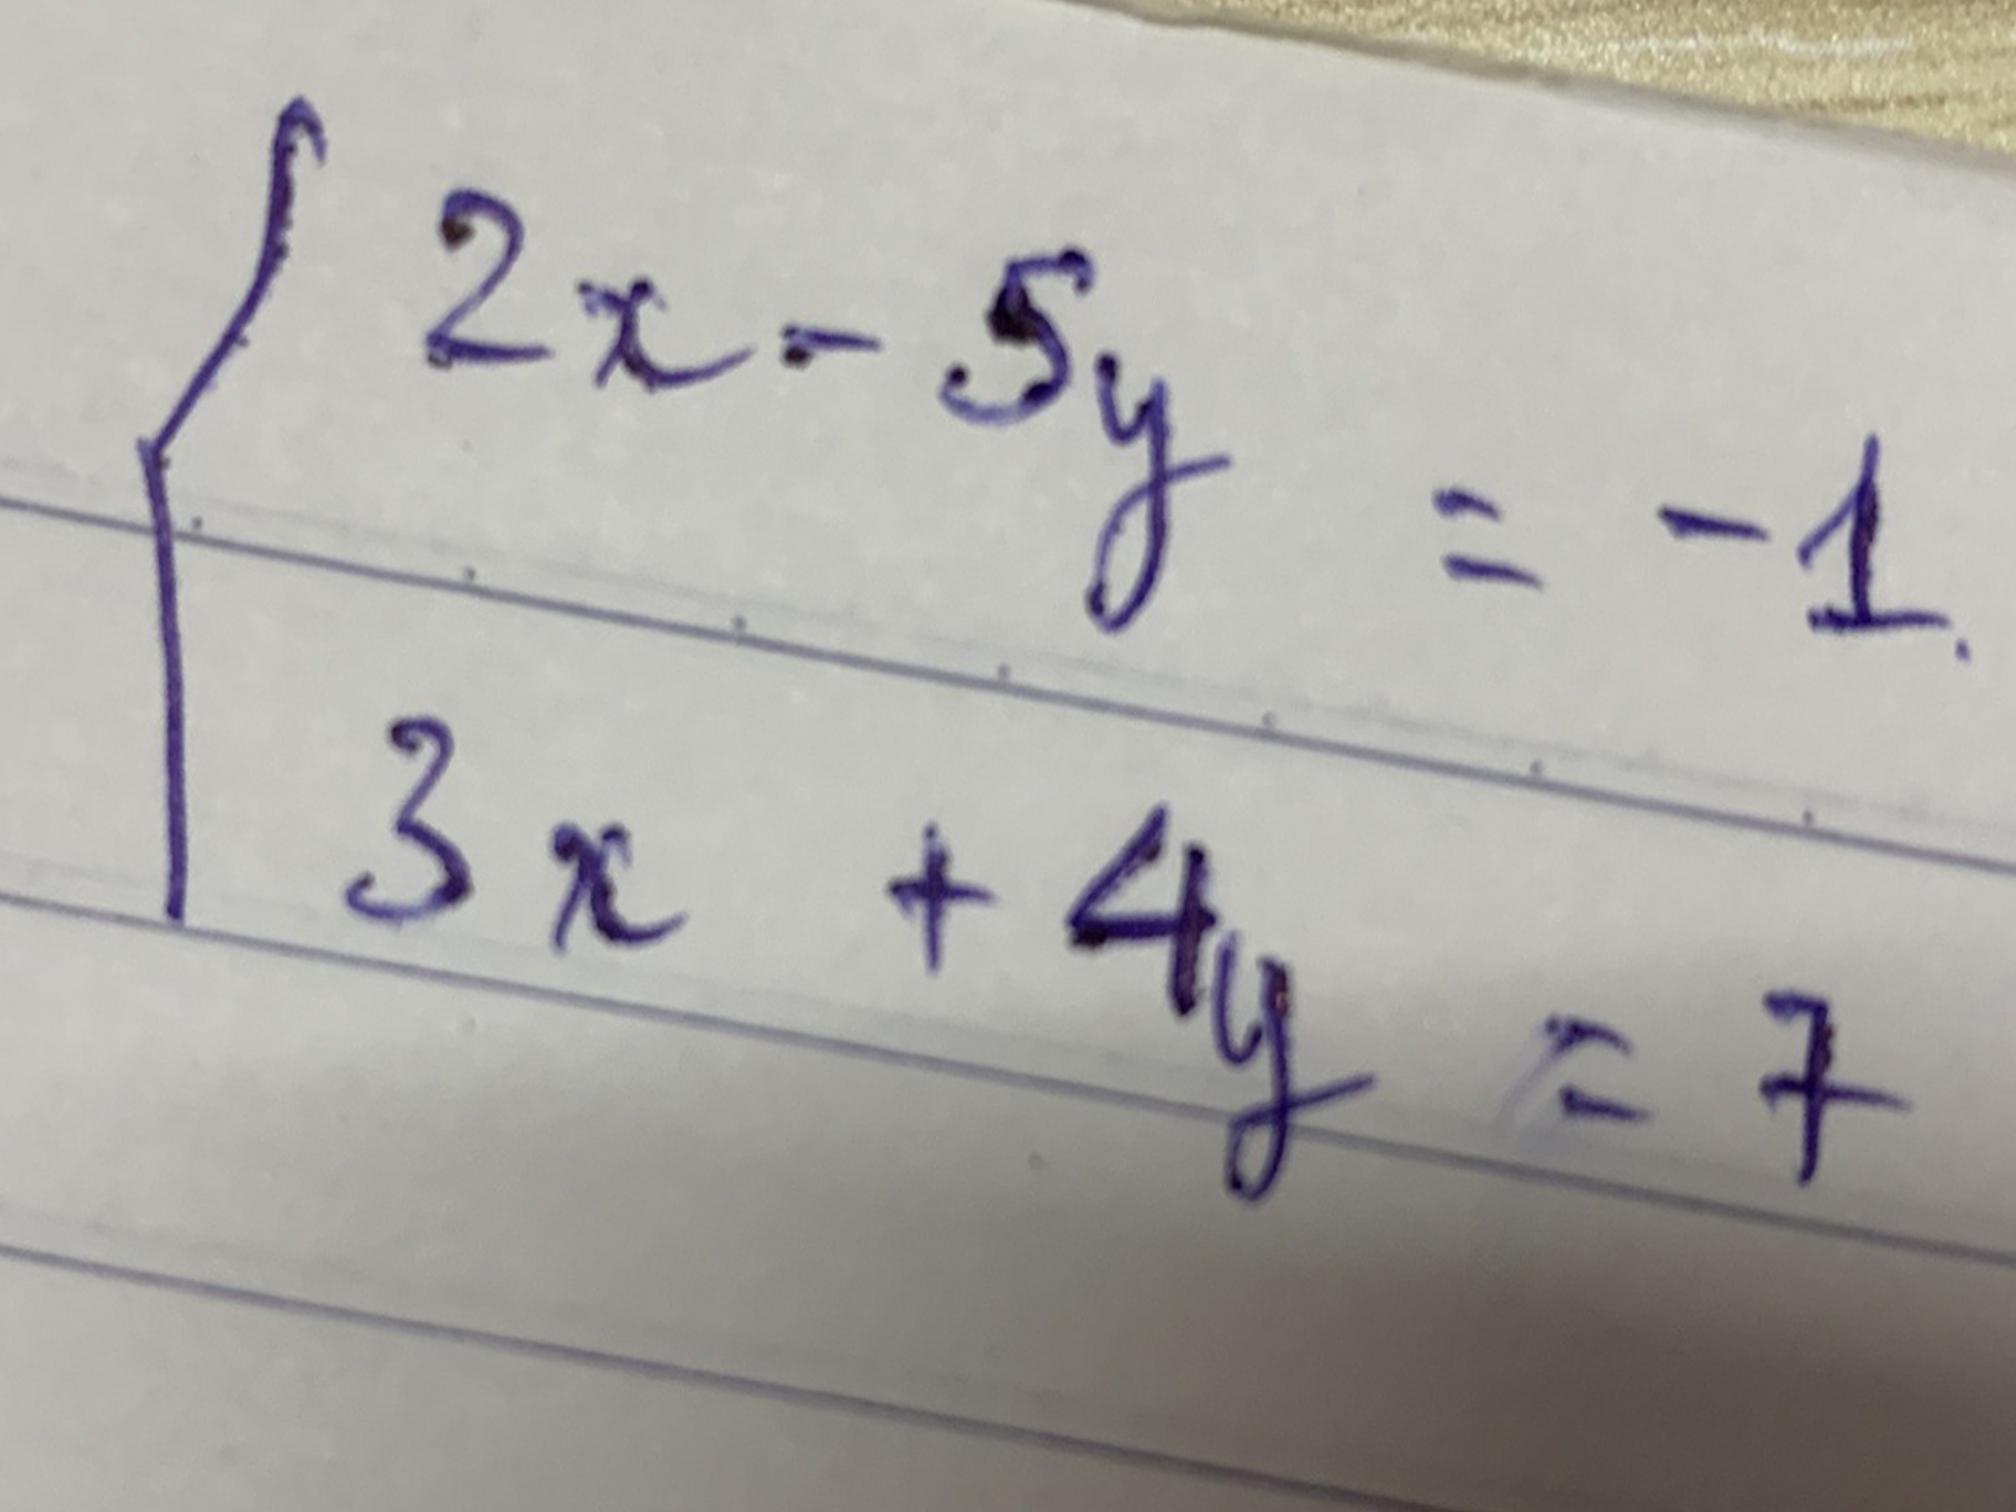 2x - 5y = -1.
3x + 4y = 7